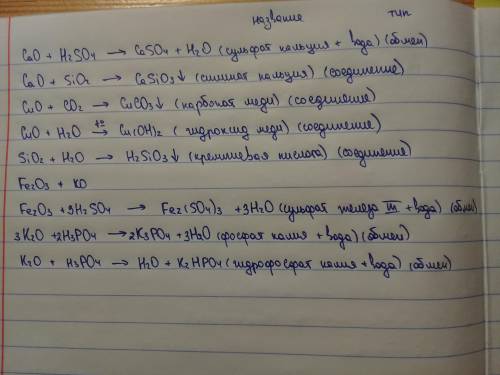 название тип
CaO + H2SO4 → CaSO4 + H2O (сульфат кальция + вода) (обмен)
CaO + SiO2 → CaSiO3↓ (силикат кальция) (соединение)
CuO + CO2 → CuCO3↓ (карбонат меди) (соединение)
CuO + H2O t°→ Cu(OH)2 (гидроксид меди) (соединение)
SiO2 + H2O → H2SiO3↓ (кремниевая кислота) (соединение)
Fe2O3 + KO
Fe2O3 + 3H2SO4 → Fe2(SO4)3 + 3H2O (сульфат железа III + вода) (обмен)
3K2O + 2H3PO4 → 2K3PO4 + 3H2O (фосфат калия + вода) (обмен)
K2O + H3PO4 → H2O + K2HPO4 (гидрофосфат калия + вода) (обмен)